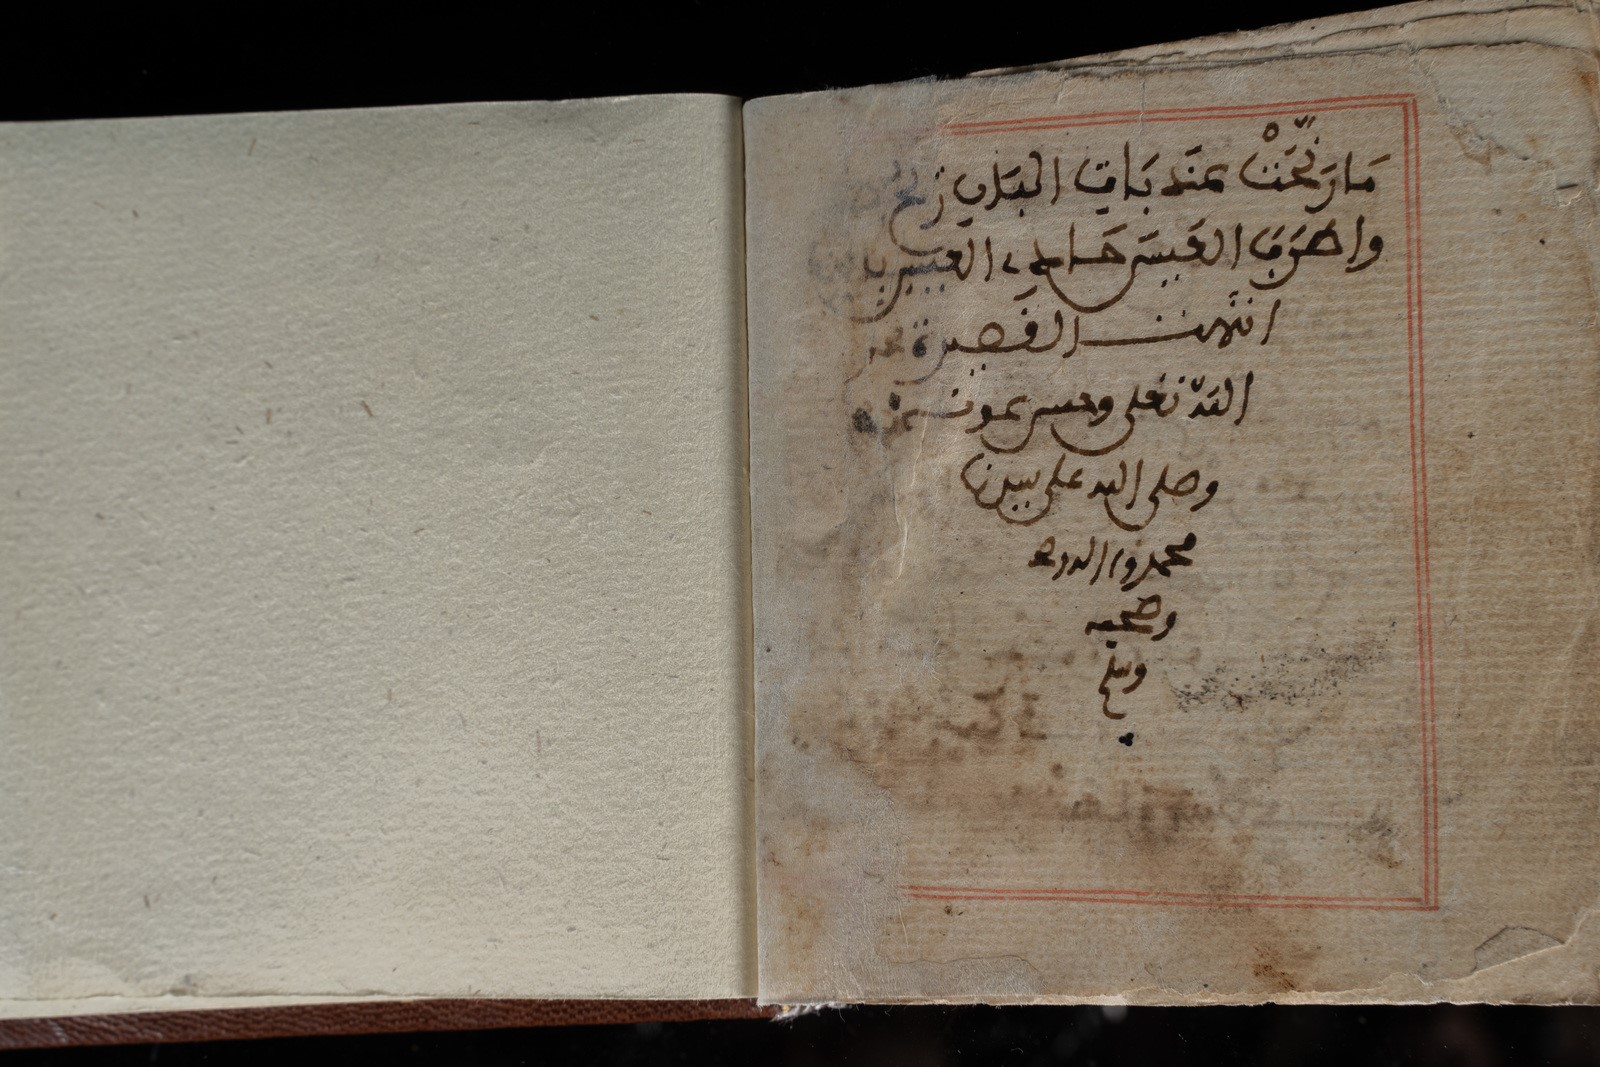 مَا رَنَّحَتْ عَذَبَاتِ الْبَانِ رِيحُ
وَاطْرَبَ الْعِيسَ حَادِي الْعِيسِ بِالنغم
انتهت القصيدة بحمد
الله تعلى وحسن عونه
وصلى الله على سيدنا
محمد وءاله
وصحبه
وسلم